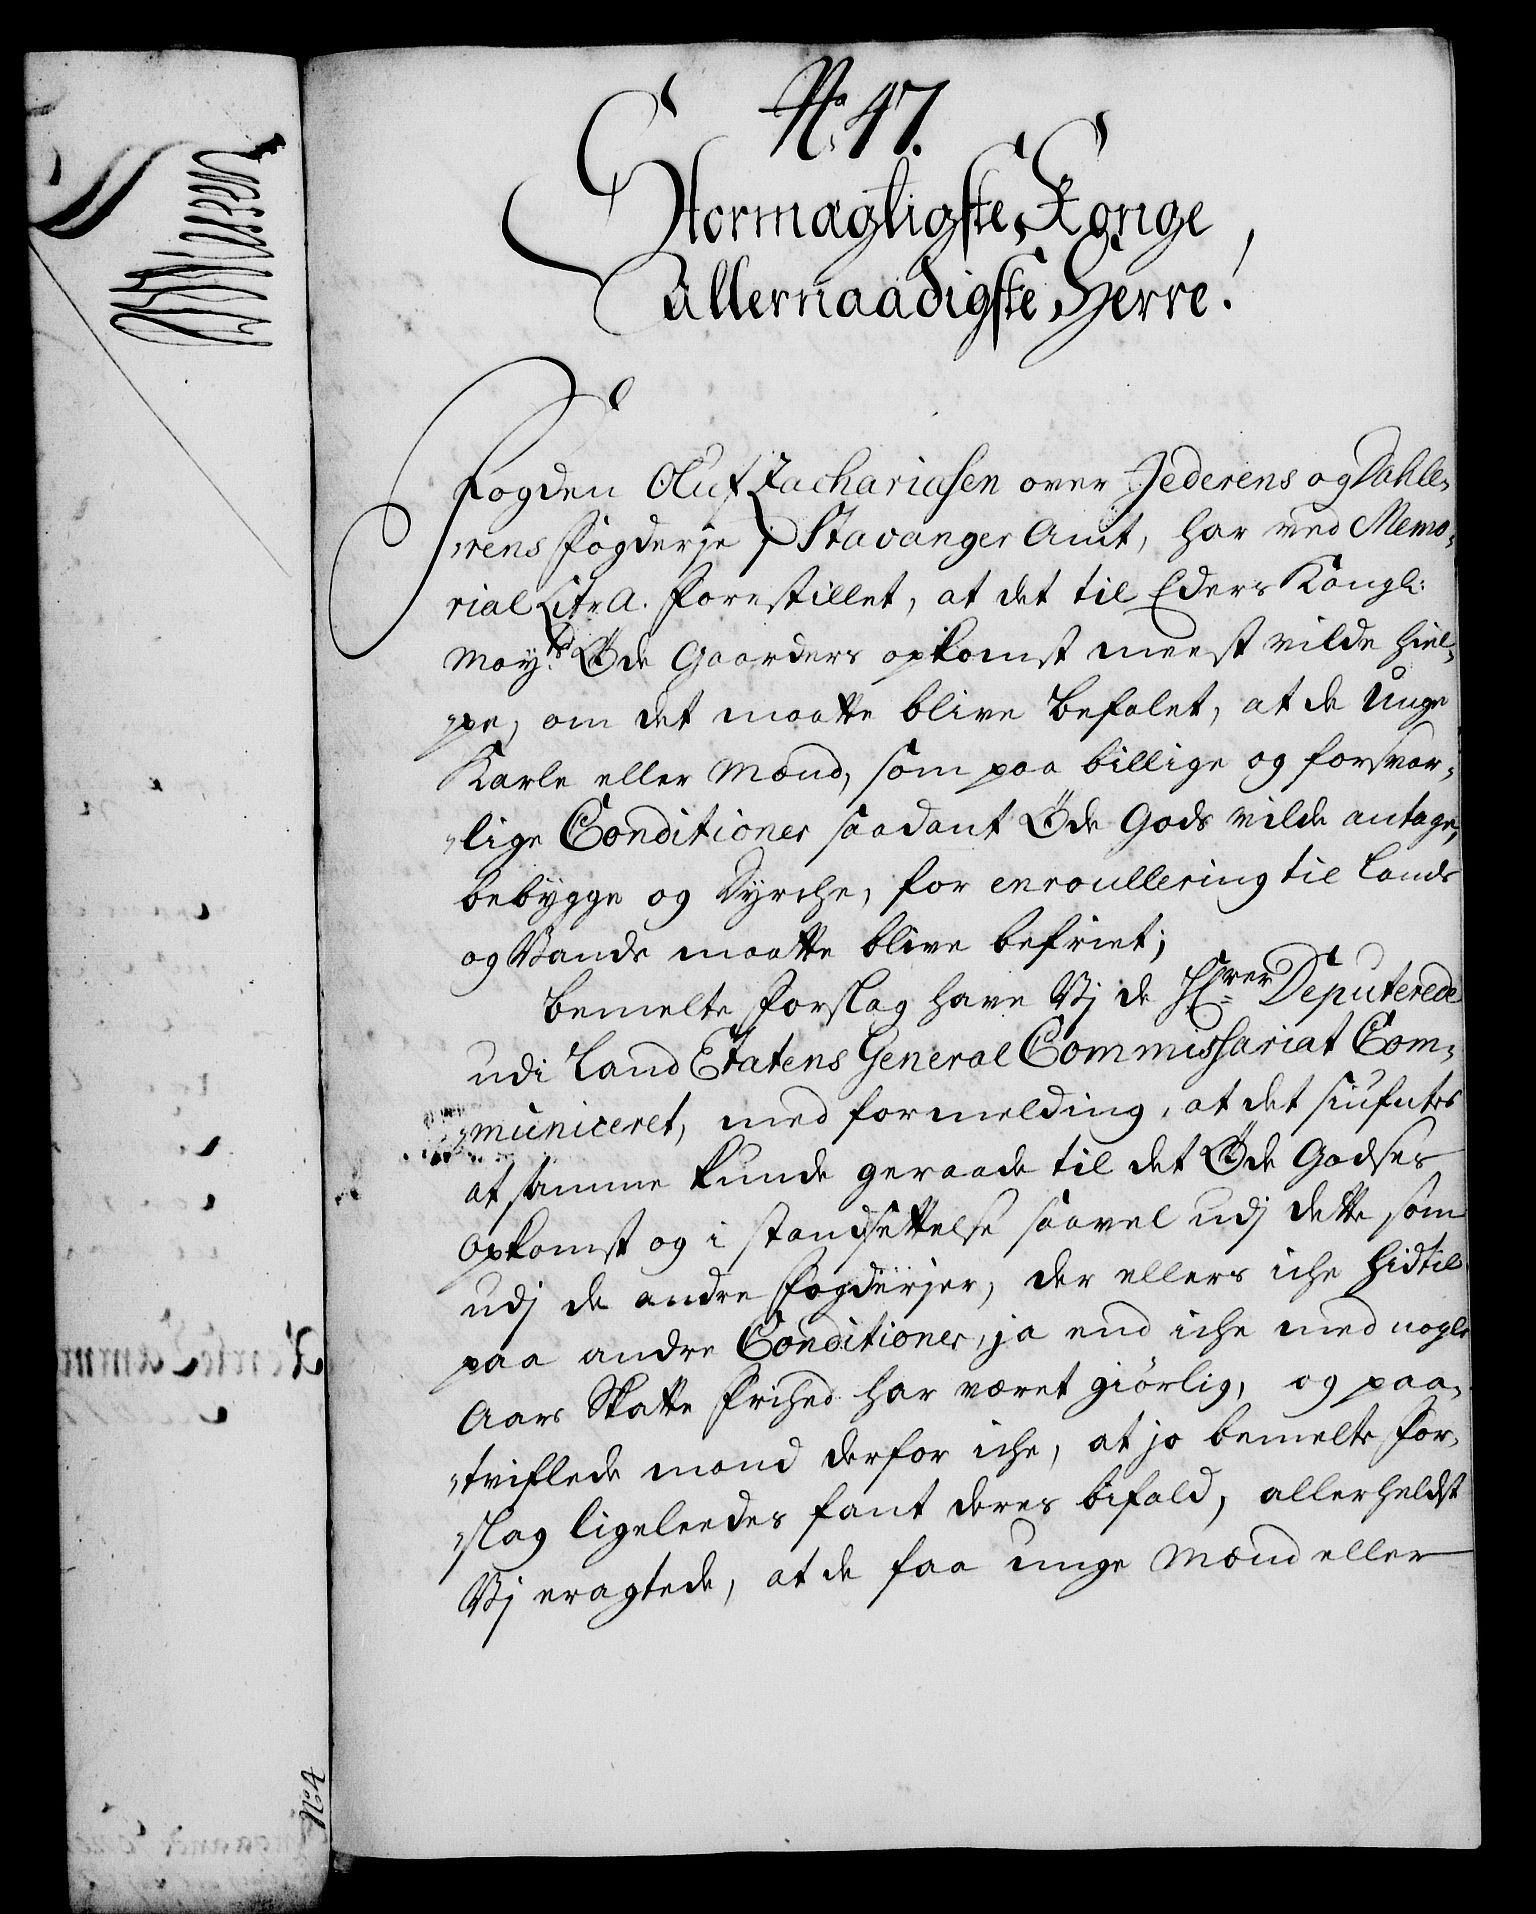 No 47.
Stormægtigste Konge
Allernaadigste Herre!
Fogden Oluf Zachariasen over Jederens og Dahle-
rens Fogderje i Stavanger Amt, har ved Memo-
rial Litr A. forestillet, at det til Eders Kongl:
May:ts Øde Gaarders opkomst meest vilde hiel-
pe, om det maatte blive befalet, at de unge
Karle eller Mænd, som paa billige og forsvar-
lige Conditioner saadant Øde Gods vilde antage,
bebygge og dyrche, for enroullering til Lands
og Vands maatte blive befriet;
Bemelte Forslag have Vj de Hrer Deputerede
udi Land Etatens General Commissariat Com-
municeret, med formelding, at det siufntes
at samme kunde geraade til det Øde Godses
Opkomst og i standsettelse saavel udj dette som
udj de andre Fogderjer, der ellers iche hidtil
paa andre Conditioner, ja end iche med nogle
Aars Skatte Frihed har været giørlig, og paa-
tviflede mand derfor iche, at jo bemelte For-
slag ligeleedes fant deres bifald, allerheldst
Vj eragtede, at de faa unge Mænd eller
No 4